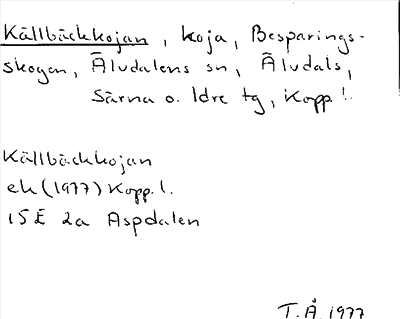 Källbäckkojan, koja, Besparings-
skogen, Älvdalens sn, Älvdals,
Särna o. Idre tg, Kopp. l.
Källbäckkojan
ek (1977) Kopp. l.
15E 2a Aspdalen
T.Å. 1977